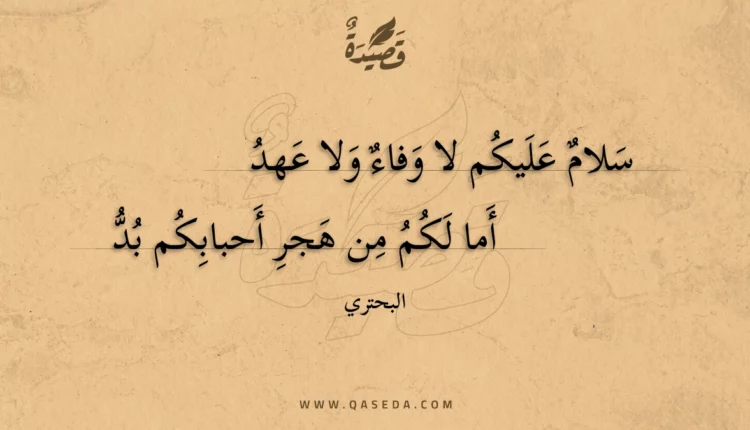 قَصِيدَةٌ
سَلامٌ عَلَيكُم لا وَفاءٌ وَلا عَهدُ
أَما لَكُمُ مِن هَجرِ أَحبابِكُم بُدُّ
البحتري
WWW.QASEDA.COM